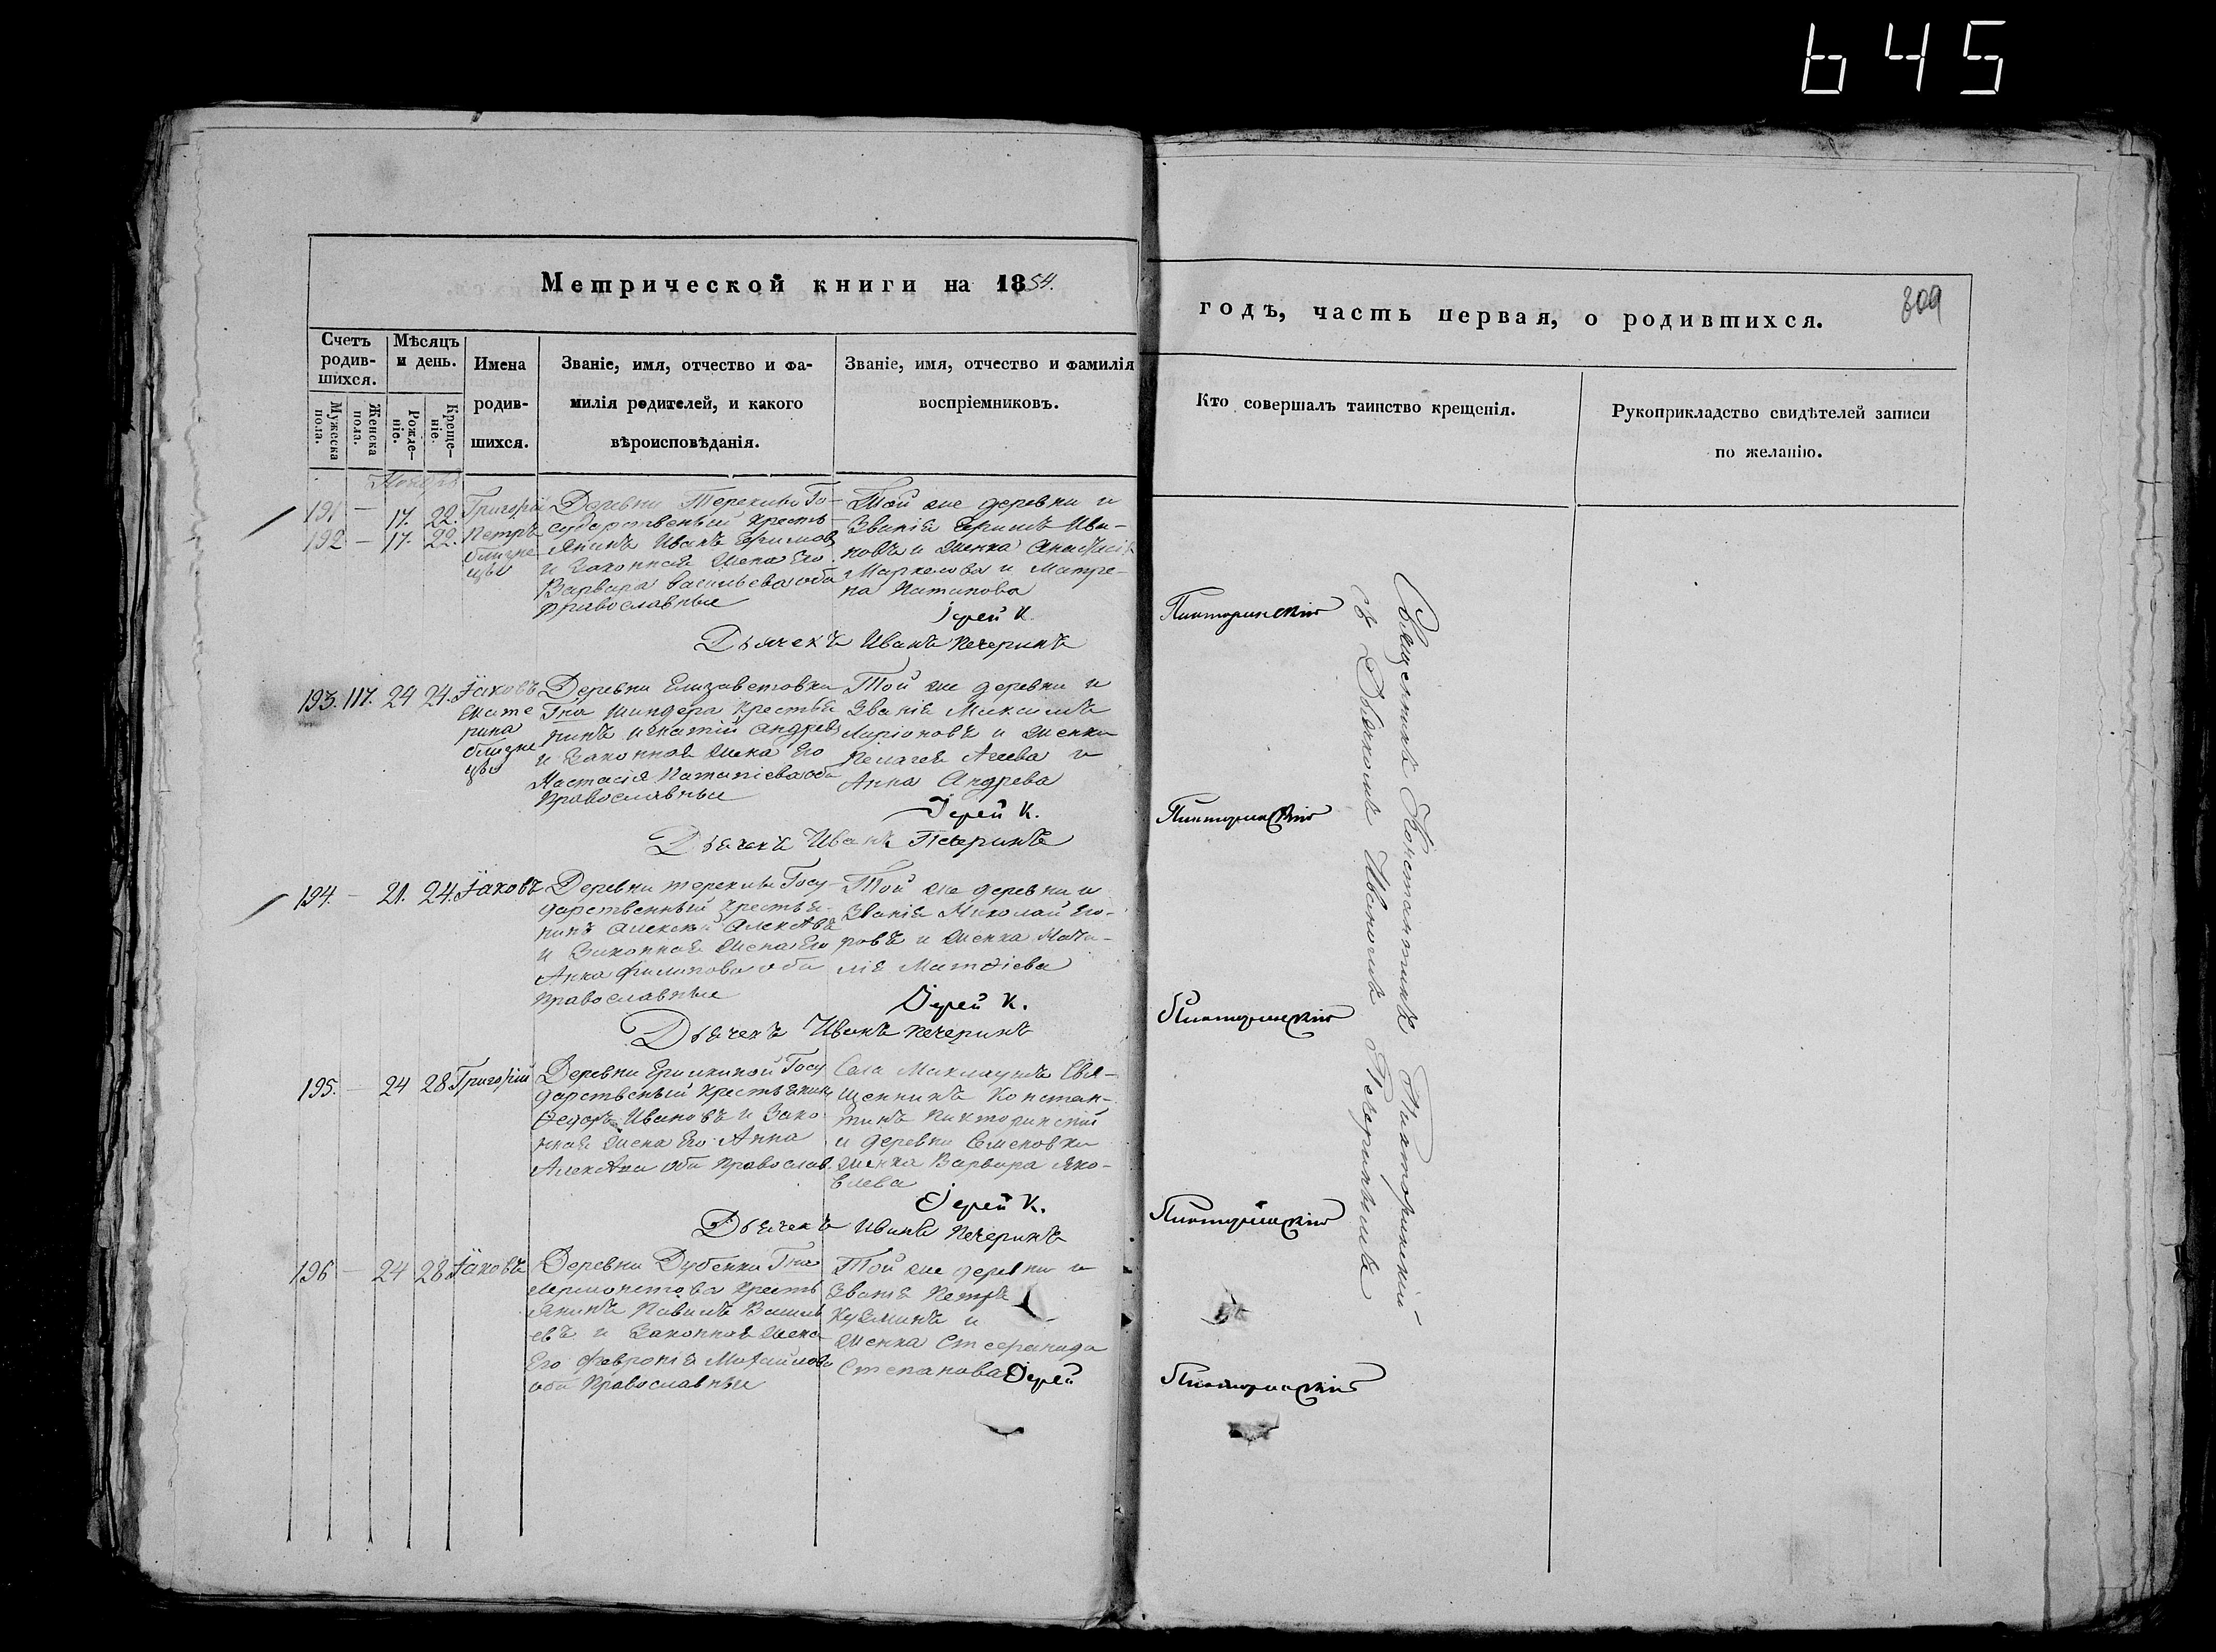 645
Метрической книги на 1854.
годъ, часть первая, о родившихся.
809
Счетъ родив-
шихся.
Мѣсяцъ
и день.
Имена
родив-
шихся.
Званіе, имя, отчество и фа-
милія родителей, и какого
вѣроисповѣданія.
Званіе, имя, отчество и фамилія
воспріемниковъ.
Кто совершалъ таинство крещенія.
Рукоприкладство свидѣтелей записи
по желанію.
Мужеска
пола.
Женска
пола.
Рожде-
ніе.
Креще-
ніе.
Ноябрь
191 — 17. 22. Григорій
192 — 17. 22. Петръ
близне
цы
Деревни Терехини Го-
сударственный кресть-
янинъ Иванъ Ефимовъ
и законная жена Его
Варвара Васильева оба
православные
Той же деревни и
званія Ефимъ Ива-
новъ и женка Анастасія
Маркелова и Матре-
на Патапова
Іерей К. Пикторинскій
Дьячекъ Иванъ Печеринъ
193. 117. 24 24. Іаковъ
Екате
рина
близне
цы
Деревни Елизаветовки
Гна Шиндера крестья
нинъ Игнатій Андреевъ
и законная жена Его
Настасія Патапіева оба
православные
Той же деревни и
званія Максимъ
Ларіоновъ и женки
Пелагея Агеева и
Анна Андрева
Іерей К. Пикторинскій
Дьячекъ Иванъ Печеринъ
194. — 21. 24. Іаковъ
Деревни Терехини Госу-
дарственный крестья-
нинъ Алексей Алексѣвъ
и законная жена Его
Анна Филипова оба
православные
Той же деревни и
званія Николай Его-
ровъ и женка Ната-
лія Матѳіева
Іерей К. Пикторинскій
Дьячекъ Иванъ Печеринъ
195. — 24 28 Григорій
Деревни Ерилкиной Госу
дарственый крестьянинъ
Ѳедоръ Ивановъ и зако
нная жена Его Анна
оба православ.
Села Маклаушъ Свя-
щенникъ Констан-
тинъ Пикторинскій
и деревни Семеновки
женка Варвара Яко-
влева
Іерей К. Пикторинскій
Дьячекъ Иванъ Печеринъ
196 — 24 28 Іаковъ
Деревни Дубенки Гна
Лермонтова кресть
янинъ Павелъ Василь
евъ и законная жена
Его Февронія Михайлова
оба православные
Той же деревни и
званія Петръ
Кузминъ и
женка Стефанида
Степанова
Іерей Пикторинскій
Священникъ Константинъ Пикторинскій
съ Дьякомъ Иваномъ Печеринымъ